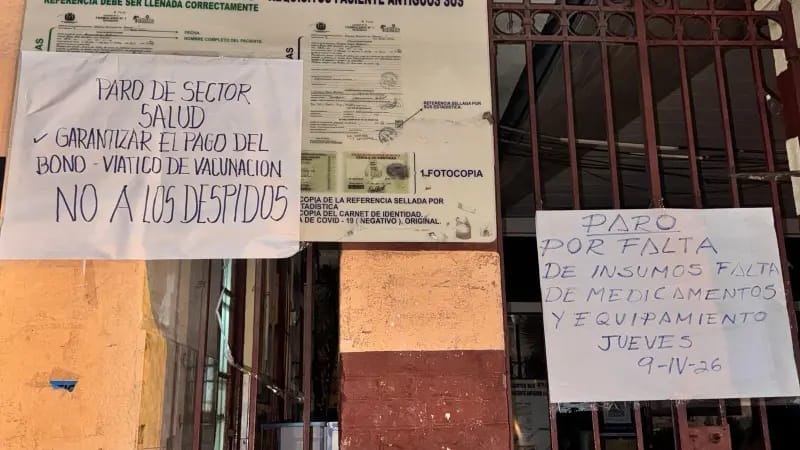 REFERENCIA DEBE SER LLENADA CORRECTAMENTE
REQUISITOS PACIENTE ANTIGUOS SUS
FECHA.
NOMBRE COMPLETO DEL PACIENTE
REFERENCIA SELLADA POR
SUS ESTADISTICA
1.FOTOCOPIA
COPIA DE LA REFERENCIA SELLADA POR
ESTADISTICA
COPIA DEL CARNET DE IDENTIDAD.
A DE COVID - 19 ( NEGATIVO ). ORIGINAL.
PARO DE SECTOR
SALUD
✓ GARANTIZAR EL PAGO DEL
BONO - VIATICO DE VACUNACION
NO A LOS DESPIDOS
PARO
POR FALTA
DE INSUMOS FALTA
DE MEDICAMENTOS
Y EQUIPAMIENTO
JUEVES
9-IV-26